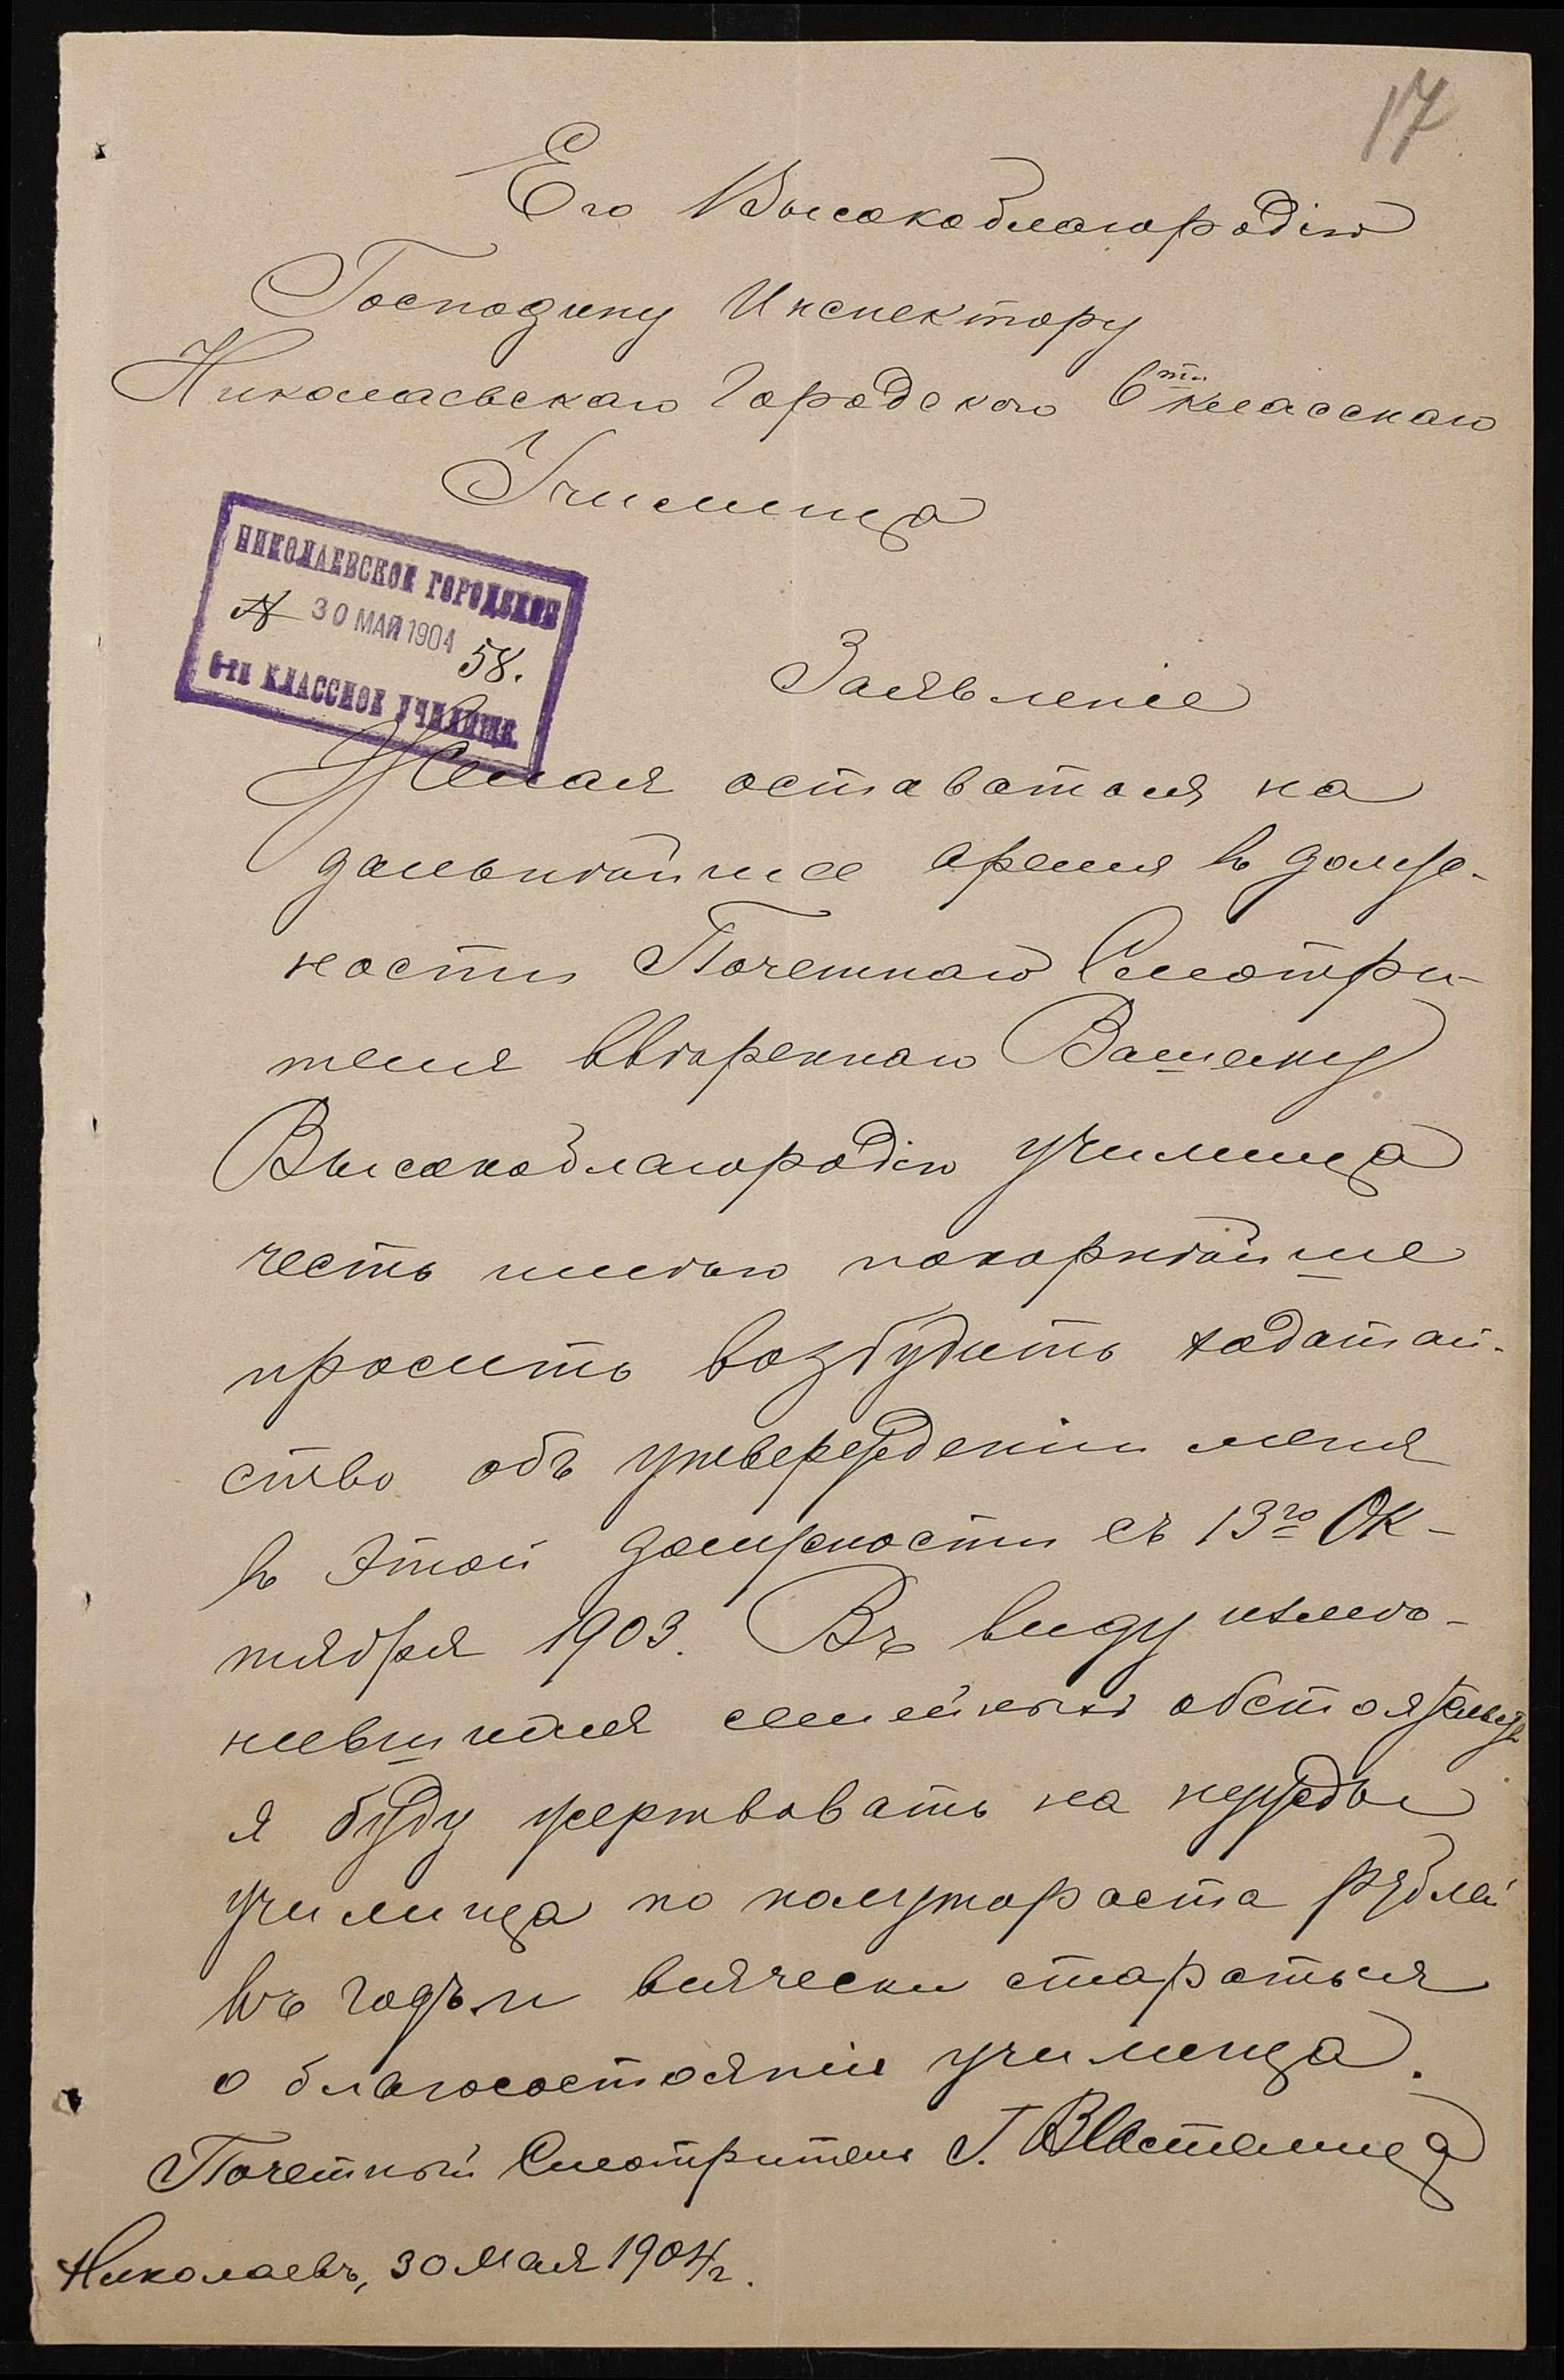 17
Его Высокоблагородію
Господину Инспектору
Николаевскаго Городского 6ти класснаго
Училища
НИКОЛАЕВСКОЕ ГОРОДСКОЕ
№ 30 МАЙ 1904 58.
6-ти КЛАССНОЕ УЧИЛИЩЕ.
Заявленіе
Желая оставаться на
дальнѣйшее время въ долж-
ности Почетнаго Смотри-
теля ввѣреннаго Вашему
Высокоблагородію училища
честь имѣю покорнѣйше
просить возбудить ходатай-
ство объ утвержденіи меня
въ этой должности съ 13го Ок-
тября 1903. Въ виду измѣ-
нившихся семейныхъ обстоятельствъ
я буду жертвовать на нужды
училища по полутораста рублей
въ годъ и всячески стараться
о благосостояніи училища.
Почетный Смотритель Г.
Николаевъ, 30 Мая 1904 г.